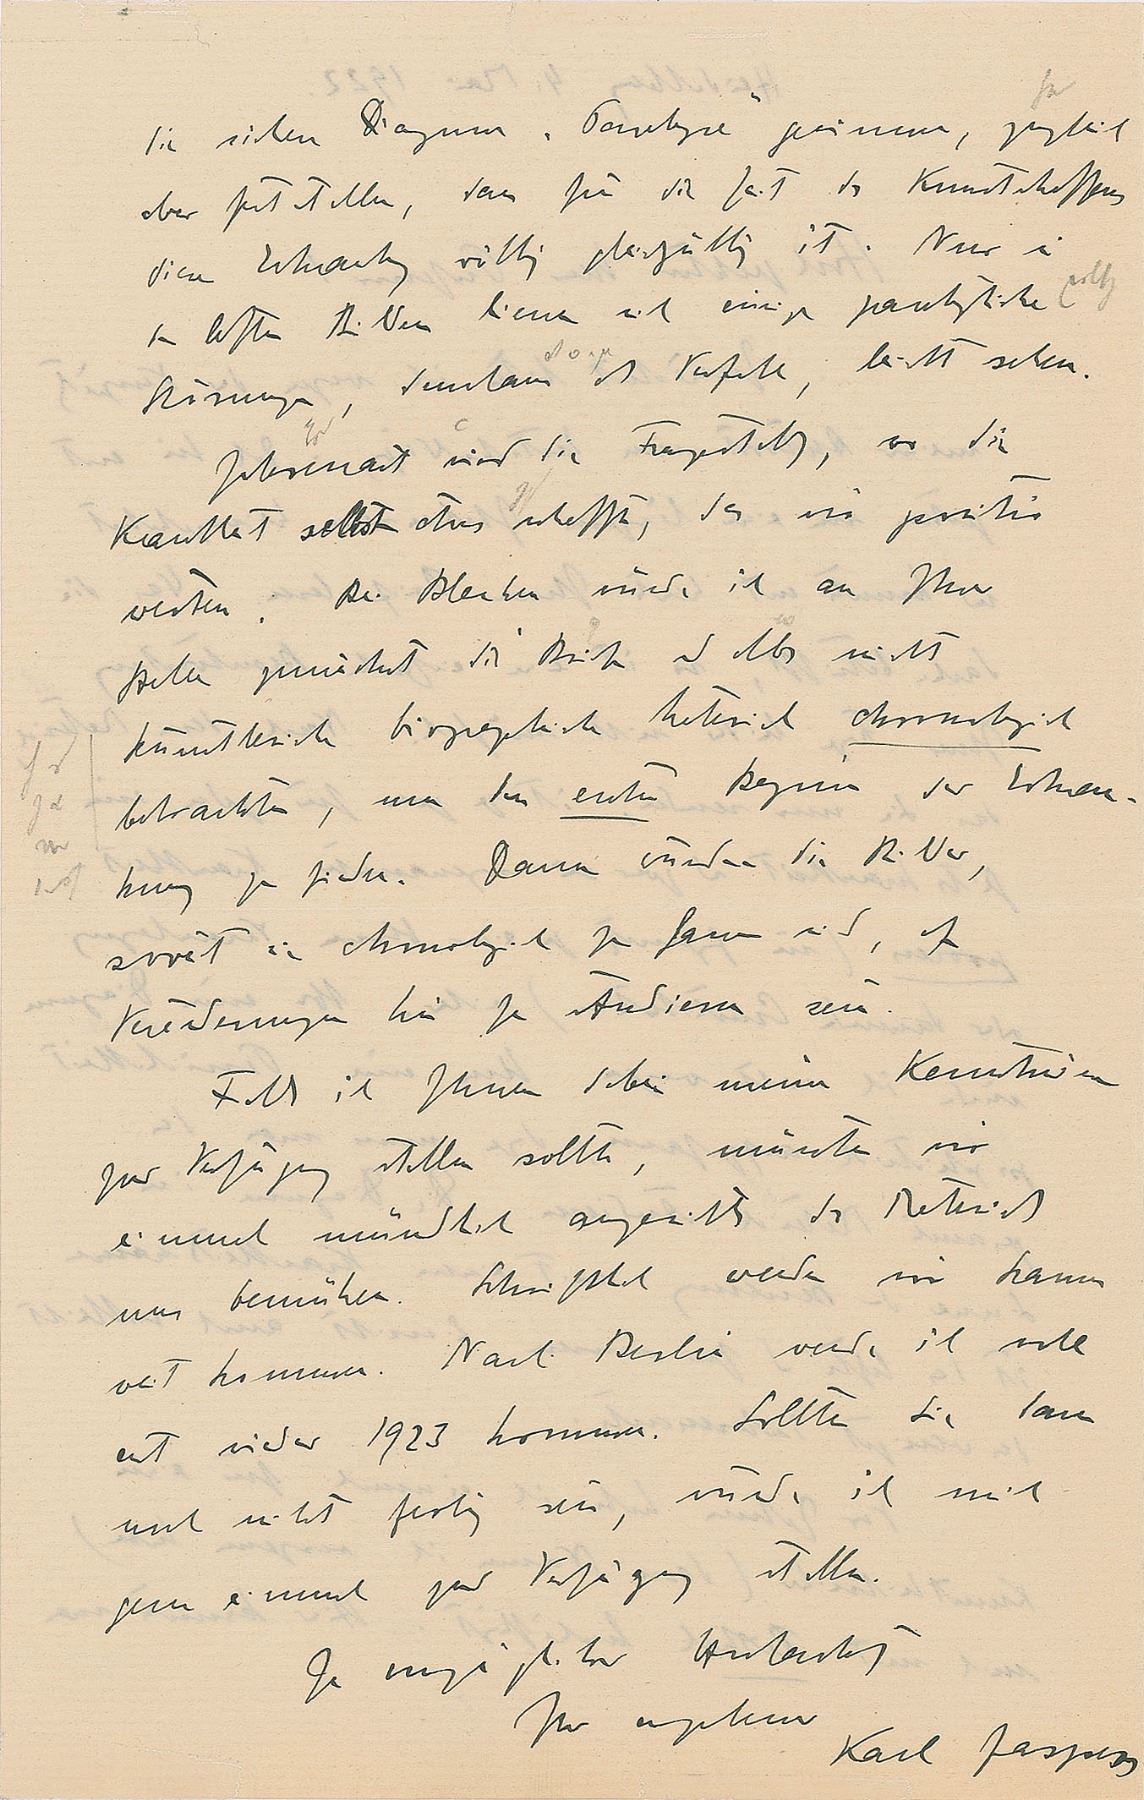 die sichere Diagnose „Paralyse" gewinnen, zugleich
aber feststellen, dass für die Zeit des Kunstschaffens
diese Erkrankung völlig gleichgültig ist. Nur in
den letzten Bildern liessen sich einige paralytische
Störungen, der Verfall, leicht sehen.
Interessant wird die Fragestellung, wo die
Krankheit selbst etwas schafft, das wir positiv
werten. Bei Blechen würde ich an Ihrer
Stelle zunächst die Briefe und alles nicht
künstlerische biographische Material chronologisch
betrachten, um den ersten Beginn der Erkran-
kung zu finden. Dann würden die Bilder,
soweit sie chronologisch zu fassen sind, auf
Veränderungen hin zu studieren sein.
Falls ich Ihnen dabei meine Kenntnisse
zur Verfügung stellen sollte, müssten wir
einmal mündlich angesichts des Materials
uns bemühen. Schriftlich werden wir kaum
weit kommen. Nach Berlin werde ich wohl
erst wieder 1923 kommen. Sollten Sie dann
noch nicht fertig sein, würde ich mich
gern einmal zur Verfügung stellen.
In vorzüglicher Hochachtung
Ihr ergebener
Karl Jaspers